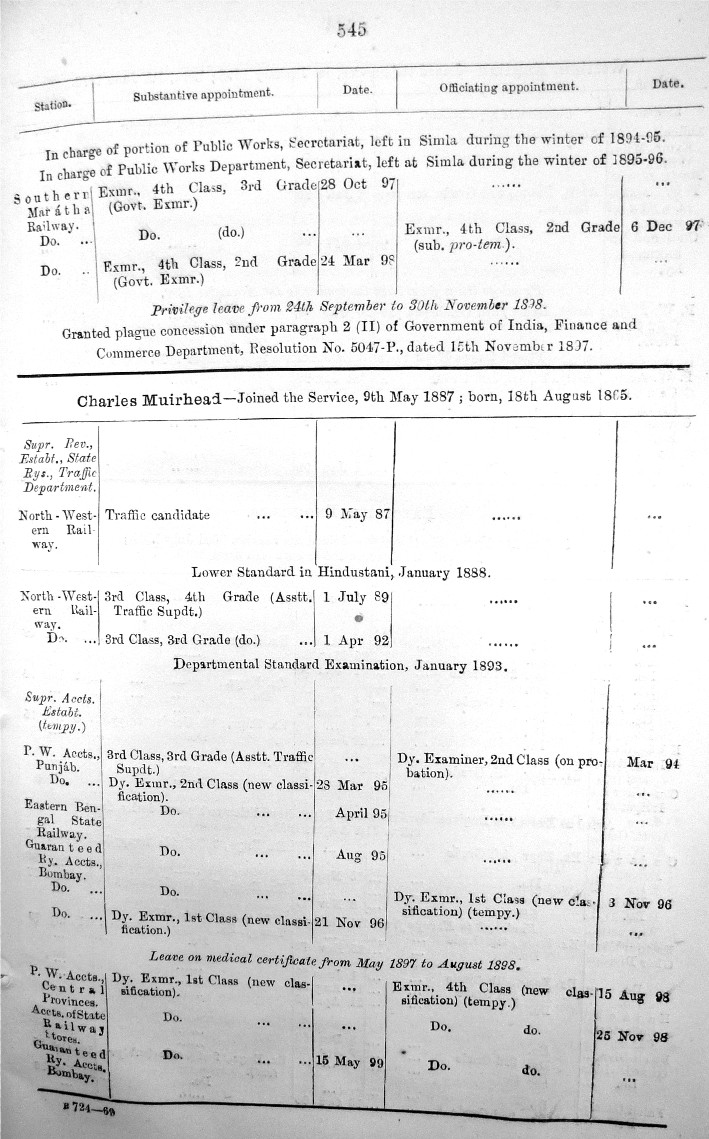 545
Station. Substantive appointment. Date. Officiating appointment. Date.
In charge of portion of Public Works, Secretariat, left in Simla during the winter of 1894-95.
In charge of Public Works Department, Secretariat, left at Simla during the winter of 1895-96.
Southern Exmr., 4th Class, 3rd Grade 28 Oct 97 ...... ...
Marátha (Govt. Exmr.)
Railway.
Do. ... Do. (do.) ... ... Exmr., 4th Class, 2nd Grade 6 Dec 97
(sub. pro-tem.).
Do. .. Exmr., 4th Class, 2nd Grade 24 Mar 98 ...... ...
(Govt. Exmr.)
Privilege leave from 24th September to 30th November 1898.
Granted plague concession under paragraph 2 (II) of Government of India, Finance and
Commerce Department, Resolution No. 5047-P., dated 15th November 1897.
Charles Muirhead—Joined the Service, 9th May 1887 ; born, 18th August 1865.
Supr. Rev.,
Establt., State
Rys., Traffic
Department.
North-West- Traffic candidate ... ... 9 May 87 ...... ...
ern Rail-
way.
Lower Standard in Hindustani, January 1888.
North-West- 3rd Class, 4th Grade (Asstt. 1 July 89 ...... ...
ern Rail- Traffic Supdt.)
way.
Do. ... 3rd Class, 3rd Grade (do.) ... 1 Apr 92 ...... ...
Departmental Standard Examination, January 1893.
Supr. Accts.
Establt.
(tempy.)
P. W. Accts., 3rd Class, 3rd Grade (Asstt. Traffic ... Dy. Examiner, 2nd Class (on pro- Mar 94
Punjáb. Supdt.) bation).
Do. ... Dy. Exmr., 2nd Class (new classi- 28 Mar 95 ...... ...
fication).
Eastern Ben- Do. ... ... April 95 ...... ...
gal State
Railway.
Guaranteed Do. ... ... Aug 95 ...... ...
Ry. Accts.,
Bombay.
Do. ... Do. ... ... ... Dy. Exmr., 1st Class (new clas- 3 Nov 96
sification) (tempy.)
Do. ... Dy. Exmr., 1st Class (new classi- 21 Nov 96 ...... ...
fication.)
Leave on medical certificate from May 1897 to August 1898.
P. W. Accts., Dy. Exmr., 1st Class (new clas- ... Exmr., 4th Class (new clas- 15 Aug 98
Central sification). sification) (tempy.)
Provinces.
Accts. of State Do. ... ... ... Do. do. 25 Nov 98
Railway
Stores.
Guaranteed Do. ... ... 15 May 99 Do. do. ...
Ry. Accts.
Bombay.
B 724—69